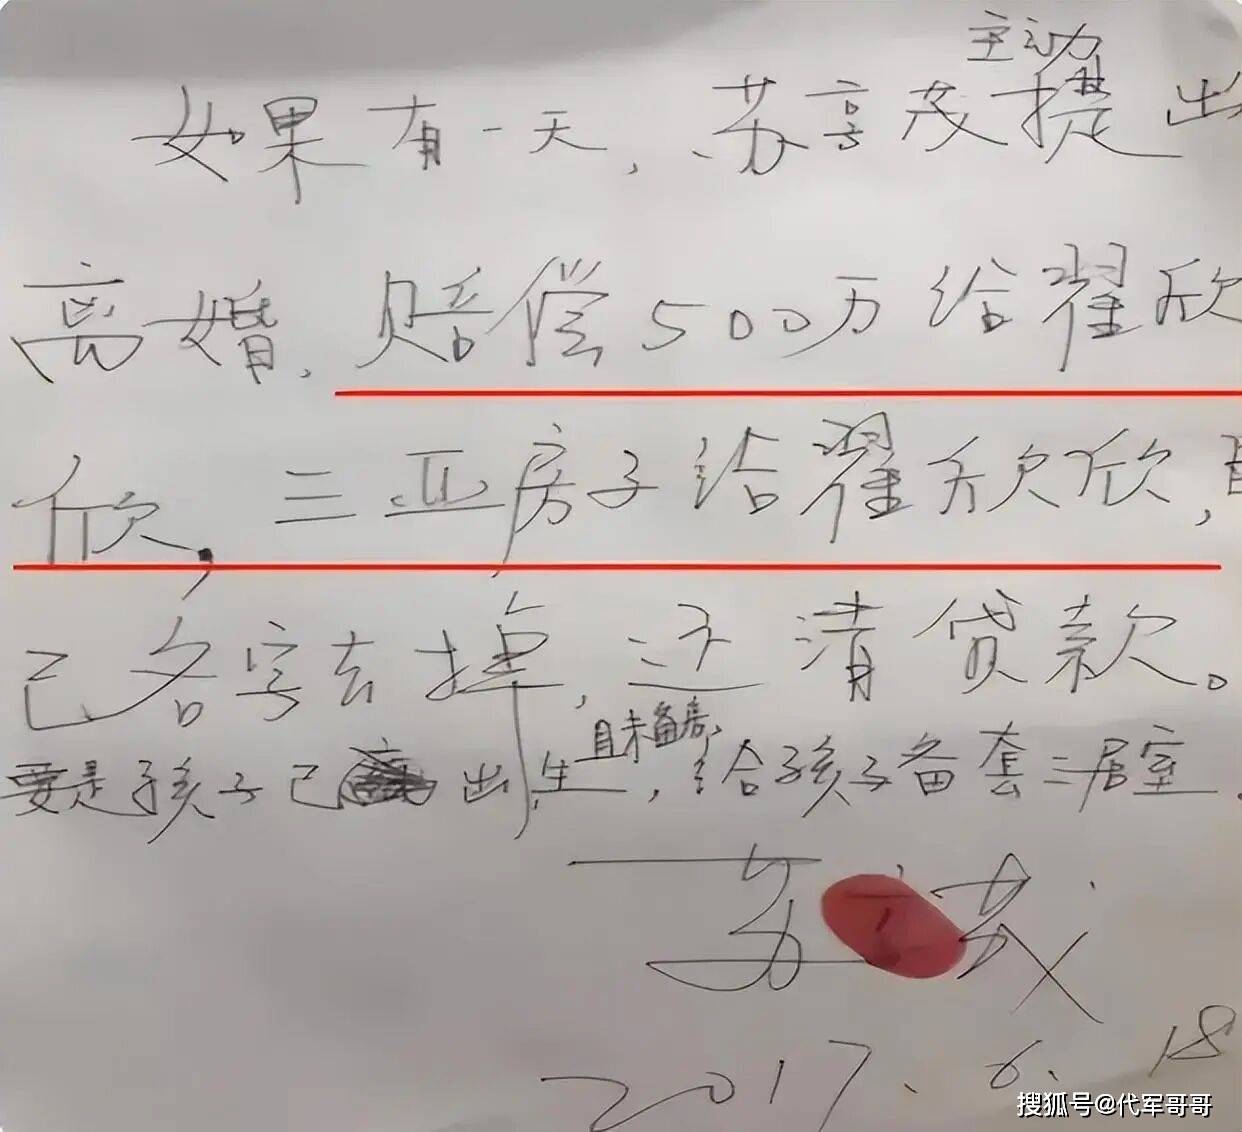 主动
如果有一天,苏享茂提出
离婚,赔偿500万给翟欣
欣,三亚房子给翟欣欣,自
己名字去掉,还清贷款。
且未备房,
要是孩子已出生,给孩子备套三居室.
苏享茂
2017.6.18
搜狐号@代军哥哥